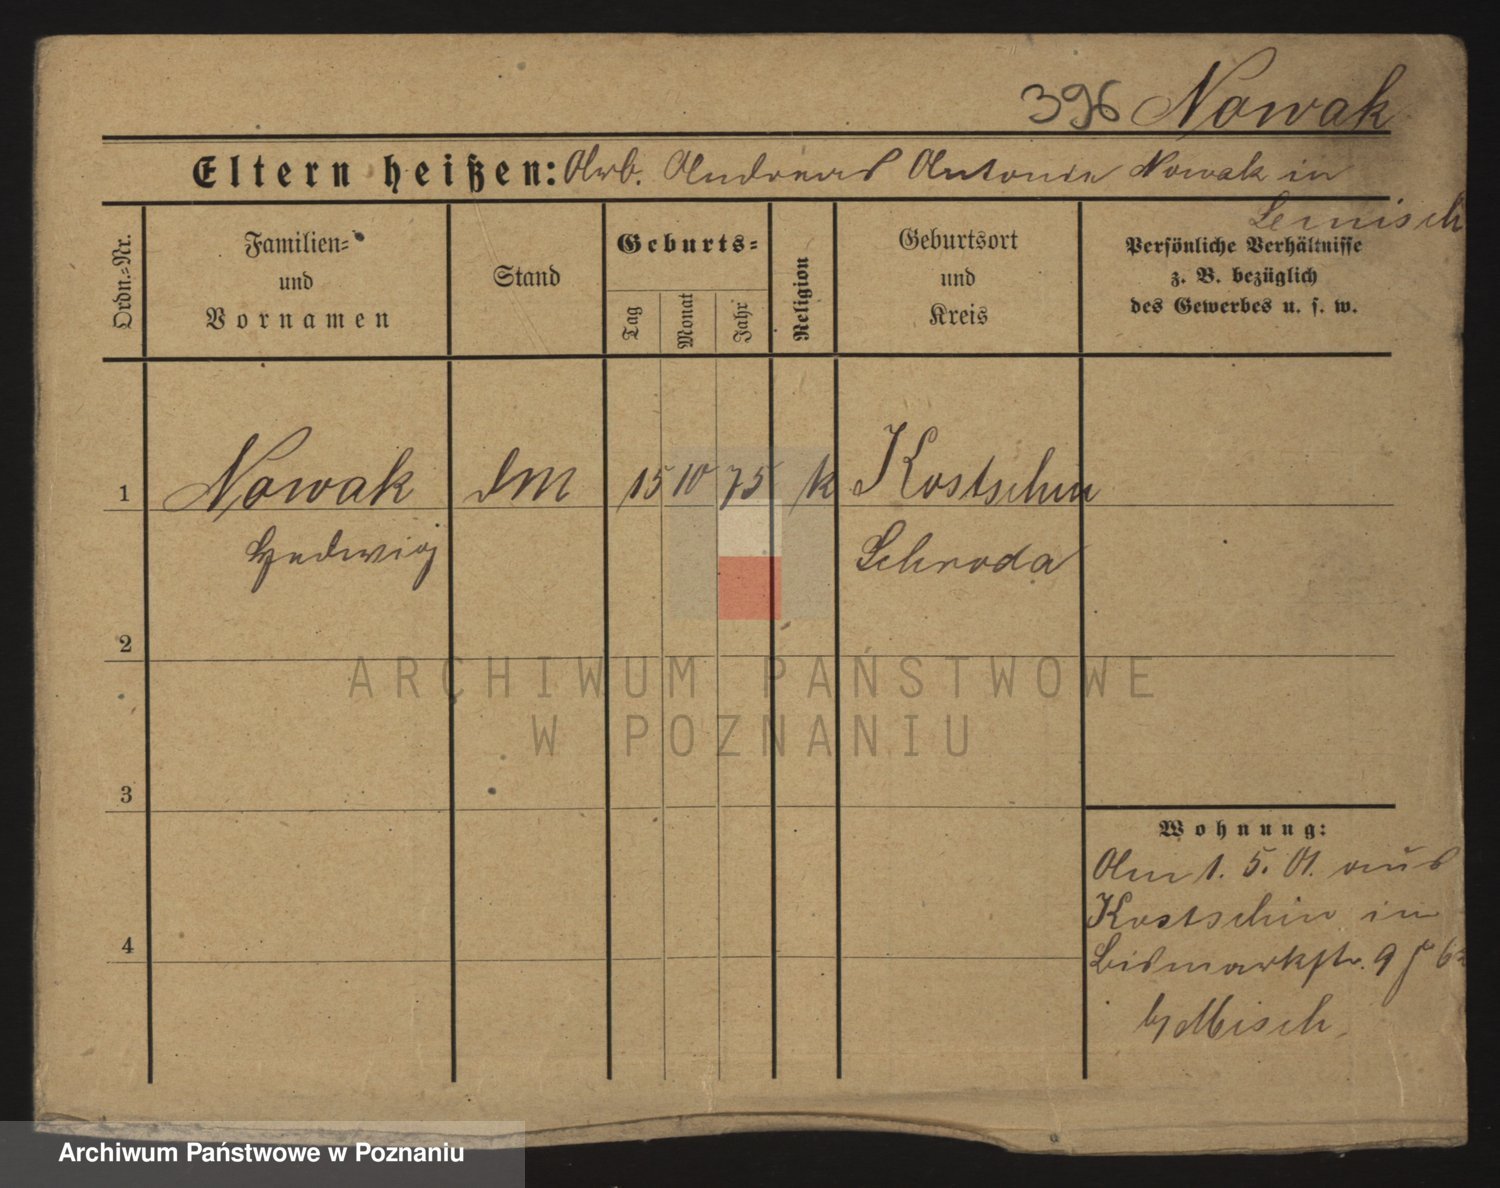 396 Nowak
Eltern heißen: Arb. Andreas Antonie Nowak in
Ordn.-Nr.
Familien-
und
Vornamen
Stand
Geburts-
Tag
Monat
Jahr
Religion
Geburtsort
und
Kreis
Persönliche Verhältnisse
z. B. bezüglich
des Gewerbes u. s. w.
1 Nowak DM 15 10 75 k Kostschin
Hedwig Schroda
2
3
4
Wohnung:
Am 1. 5. 01. aus
Kostschin in
Bismarkstr. 9
b/ Misch.
ARCHIWUM PAŃSTWOWE
W POZNANIU
Archiwum Państwowe w Poznaniu